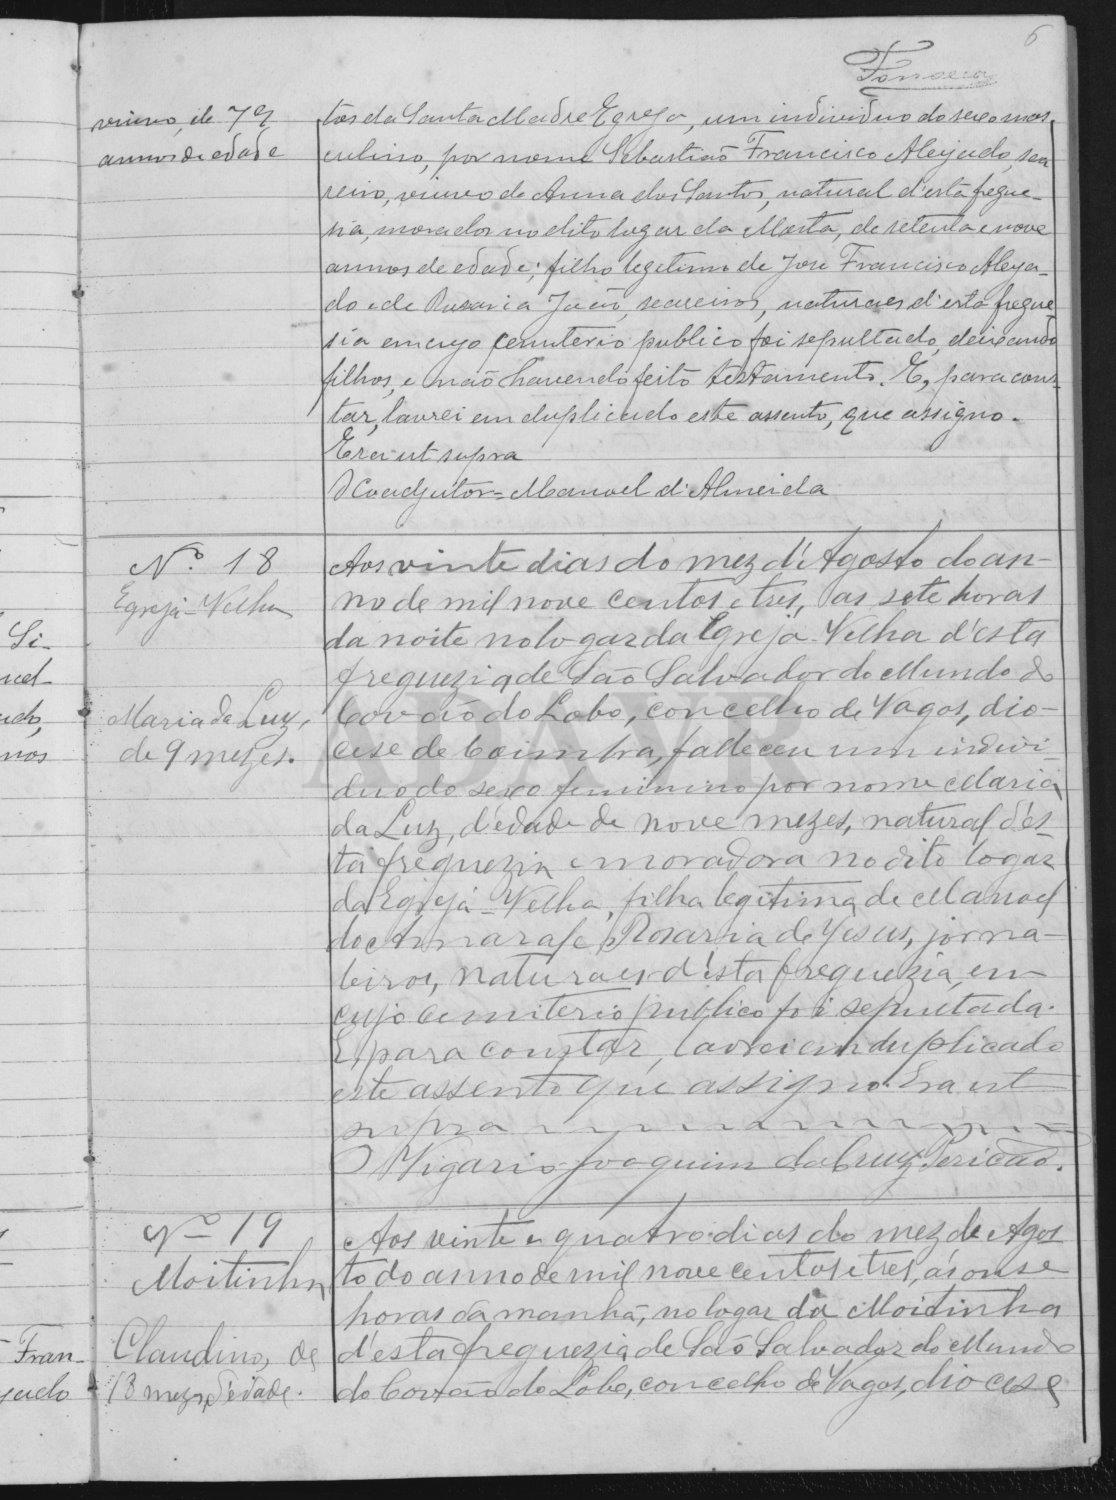 6
Fonseca
viuvo, de 79
annos de edade
tos da Santa Madre Egreja, um individuo do sexo mas-
culino, por nome Sebastião Francisco Aleijado, sea-
reiro, viuvo de Anna dos Santos, natural d'esta fregue-
sia, morador no dito lugar da Marta, de setenta e nove
annos de edade; filho legetimo de José Francisco Aleja-
do e de Rusaria João, seareiros, naturaes d'esta fregue-
sia em cujo cemiterio publico foi sepultado, deixando
filhos, e não havendo feito testamento. E, para cons-
tar, lavrei em duplicado este assento, que assigno.
Era ut supra
O Coadjutor = Manuel d'Almeida
Nº 18
Egreja-Velha
Maria da Luz,
de 9 mezes.
Aos vinte dias do mez d'Agosto do an-
no de mil nove centos e tres, as sete horas
da noite no logar da Egreja-Velha d'esta
freguezia de São Salvador do Mundo do
Covão do Lobo, concelho de Vagos, dio-
cese de Coimbra, falleceu um indivi-
duo do sexo feminino por nome Maria
da Luz, d'edade de nove mezes, natural d'es-
ta freguezia e moradora no dito logar
da Egreja-Velha, filha legitima de Manoel
do Amaral e Rosaria de Jesus, jorna-
leiros, naturaes d'esta freguezia, em
cujo cemiterio publico foi sepultada.
E, para constar, lavrei em duplicado
este assento que assigno. Era ut
supra
O Vigario Joaquim da Cruz Pericão.
Nº 19
Moitinha
Claudino, de
13 mezes d'edade.
Aos vinte e quatro dias do mez de Agos-
to do anno de mil nove centos e tres, ás onse
horas da manhã, no lugar da Moitinha
d'esta freguezia de São Salvador do Mundo
do Covão do Lobo, concelho de Vagos, diocese
Si-
uel
ado,
nos
Fran-
jado
ADAVR